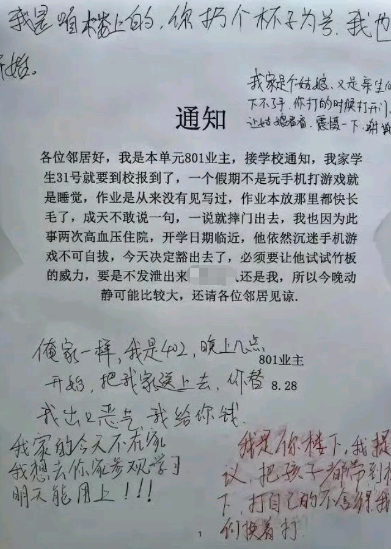 我是咱楼上的，你扔个杯子为号，我也
开始。
我家是个姑娘，又是亲生
下不了手，你打的时候打开门
让姑娘看看，震慑一下，谢谢
通知
各位邻居好，我是本单元801业主，接学校通知，我家学
生31号就要到校报到了，一个假期不是玩手机打游戏就
是睡觉，作业是从来没有见写过，作业本放那里都快长
毛了，成天不敢说一句，一说就摔门出去，我也因为此
事两次高血压住院，开学日期临近，他依然沉迷手机游
戏不可自拔，今天决定豁出去了，必须要让他试试竹板
的威力，要是不发泄出来
还是我，所以今晚动
静可能比较大，还请各位邻居见谅.
801业主
8.28
俺家一样，我是402，晚上几点
开始，把我家送上去，你替
我出口恶气 我给你钱
我家的今天不在家
我想去你家参观学习
明天能用上！！！
我是你楼下，我提
议，把孩子都带到楼
下，打自己的不舍得，我
们换着打.
1